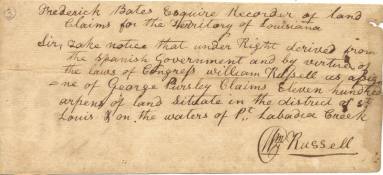 Frederick Bates Esquire Recorder of land
Claims for the Territory of Louisiana
Sir, take notice that under Right derived from
the Spanish Government and by virtue of
the laws of Congress William Russell as assig
ne of George Pursley Claims Eleven hundred
arpens of land situate in the district of St
Louis & on the waters of Pt. Labadia Creek
Wm Russell